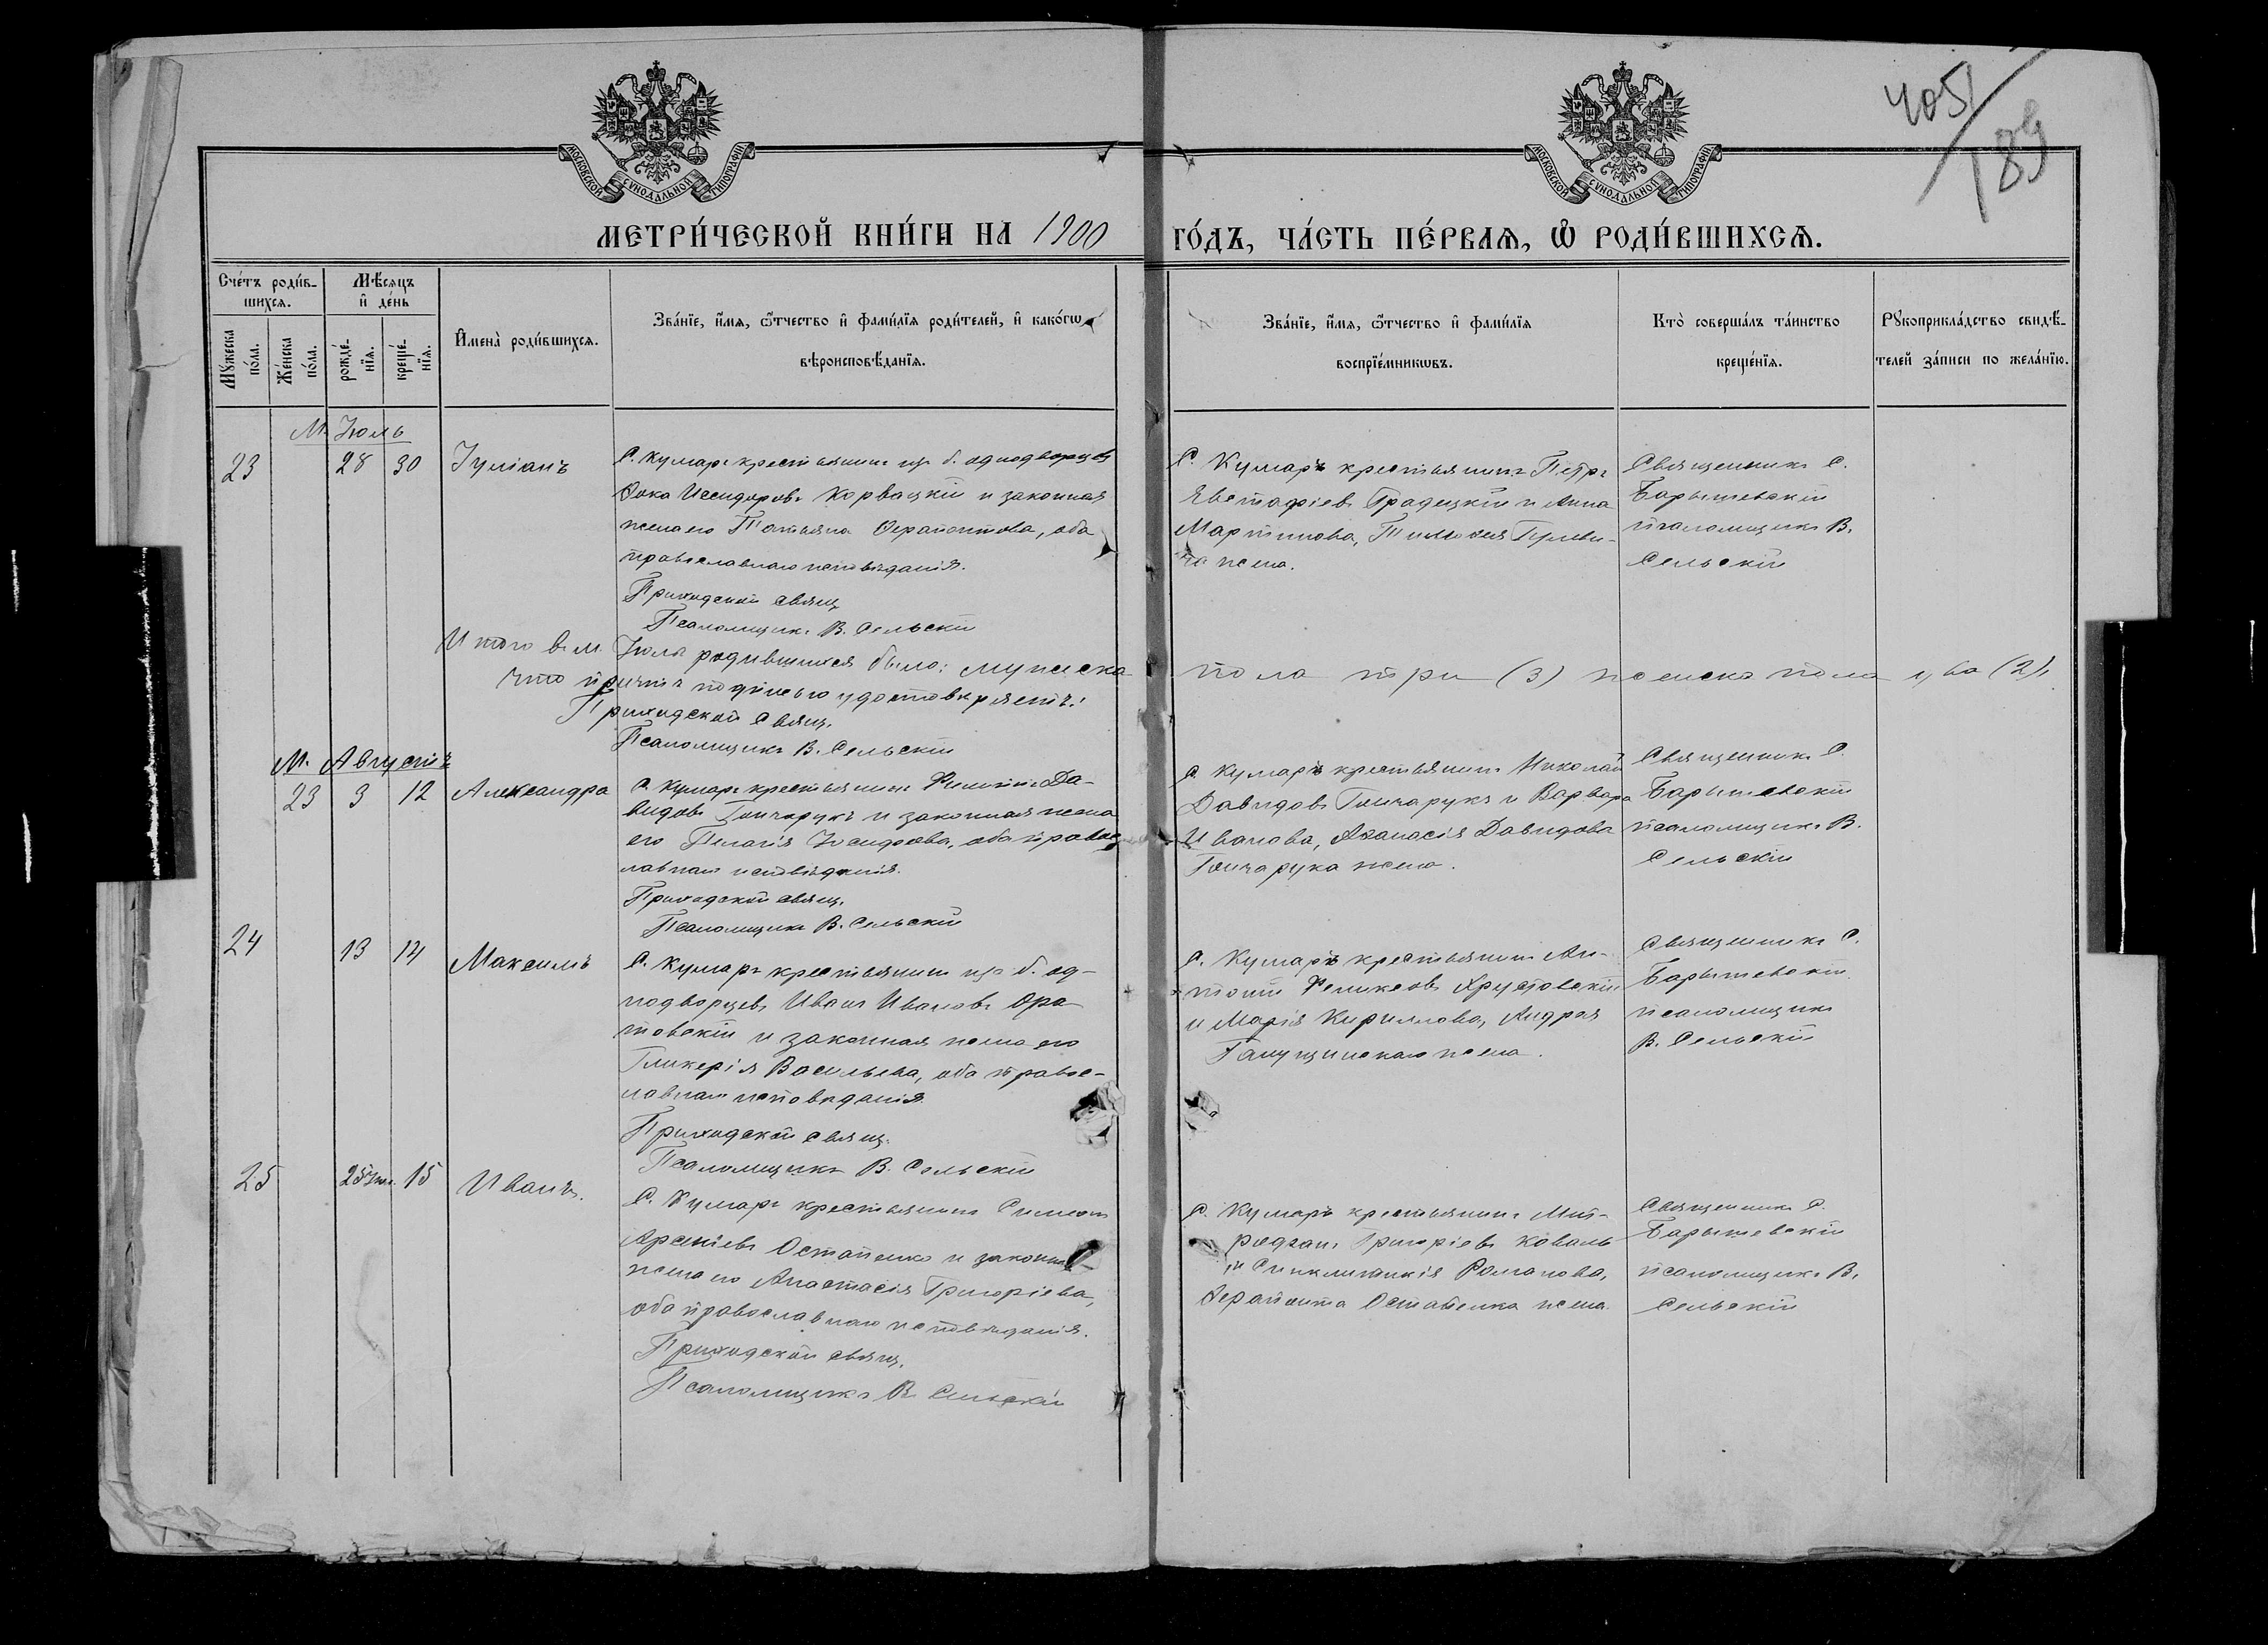 405/189
МОСКОВСКОЙ СѴНОДАЛЬНОЙ ТИПОГРАФІИ
МОСКОВСКОЙ СѴНОДАЛЬНОЙ ТИПОГРАФІИ
МЕТРИ́ЧЕСКОЙ КНИ́ГИ НА 1900 ГО́ДЪ, ЧА́СТЬ ПЕ́РВАѦ, Ѽ РОДИ́ВШИХСѦ.
Сче́тъ роди́в-
шихсѧ.
Мѣ́сѧцъ
и҆ де́нь
Мꙋжеска
по́ла.
Же́нска
по́ла.
рожде́-
нїѧ.
креще́-
нїѧ.
И҆мена̀ роди́вшихсѧ.
Зва́нїе, и҆́мѧ, ѻ҆́тчество и҆ фами́лїѧ роди́телей, и҆ како́гѡ
вѣроисповѣ́данїѧ.
Зва́нїе, и҆́мѧ, ѻ҆́тчество и҆ фами́лїѧ
воспрїе́мникѡвъ.
Кто̀ соверша́лъ та́инство
креще́нїѧ.
Рꙋкоприкла́дство свидѣ́-
телей за́писи по жела́нїю.
М. Іюль
23 28 30 Іуліанъ
С. Кумаръ крестьянинъ изъ б. однодворцевъ
Фока Исидоровъ Корвацкій и законная
жена его Татьяна Ферапонтова, оба
православнаго исповѣданія.
Приходскій свящ.
Псаломщикъ В. Сельскій
С. Кумаръ крестьянинъ Петръ
Евстафіевъ Градецкій и Анна
Мартинова, Тимофея
жена.
Священникъ С.
Барышевскій
псаломщикъ В.
Сельскій
Итого въ м. Іюлѣ родившихся было: мужеска пола три (3) женска пола два (2),
что причтъ подписью удостовѣряетъ:
Приходскій Свящ.
Псаломщикъ В. Сельскій
М. Августъ
23 3 12 Александра
С. Кумаръ крестьянинъ Филиппъ Да-
видовъ Гончарукъ и законная жена
его Пелагія Іосифова, оба правос-
лавнаго исповѣданія.
Приходскій свящ.
Псаломщикъ В. Сельскій
С. Кумаръ крестьянинъ Николай
Давидовъ Гончарукъ и Варвара
Иванова, Аѳанасія Давидова
Гончарука жена.
Священникъ С.
Барышевскій
псаломщикъ В.
Сельскій
24 13 14 Максимъ
С. Кумаръ крестьянинъ изъ б. од-
нодворцевъ Иванъ Ивановъ Ора-
товскій и законная жена его
Гликерія Васильева, оба правос-
лавнаго исповѣданія.
Приходскій свящ.
Псаломщикъ В. Сельскій
С. Кумаръ крестьянинъ Ан-
тоній Феликсовъ Хрустовскій
и Марія Кириллова, Андрея
жена.
Священникъ С.
Барышевскій
псаломщикъ
В. Сельскій
25 25 Іюл. 15 Иванъ.
С. Кумаръ крестьянинъ Симеонъ
Арсеніевъ Остапенко и законная
жена его Анастасія Григоріева,
оба православнаго исповѣданія.
Приходскій свящ.
Псаломщикъ В. Сельскій
С. Кумаръ крестьянинъ Мит-
рофанъ Григоріевъ Коваль
и Синклитикія Романова,
Ферапонта Остапенка жена.
Священникъ С.
Барышевскій
псаломщикъ В.
Сельскій